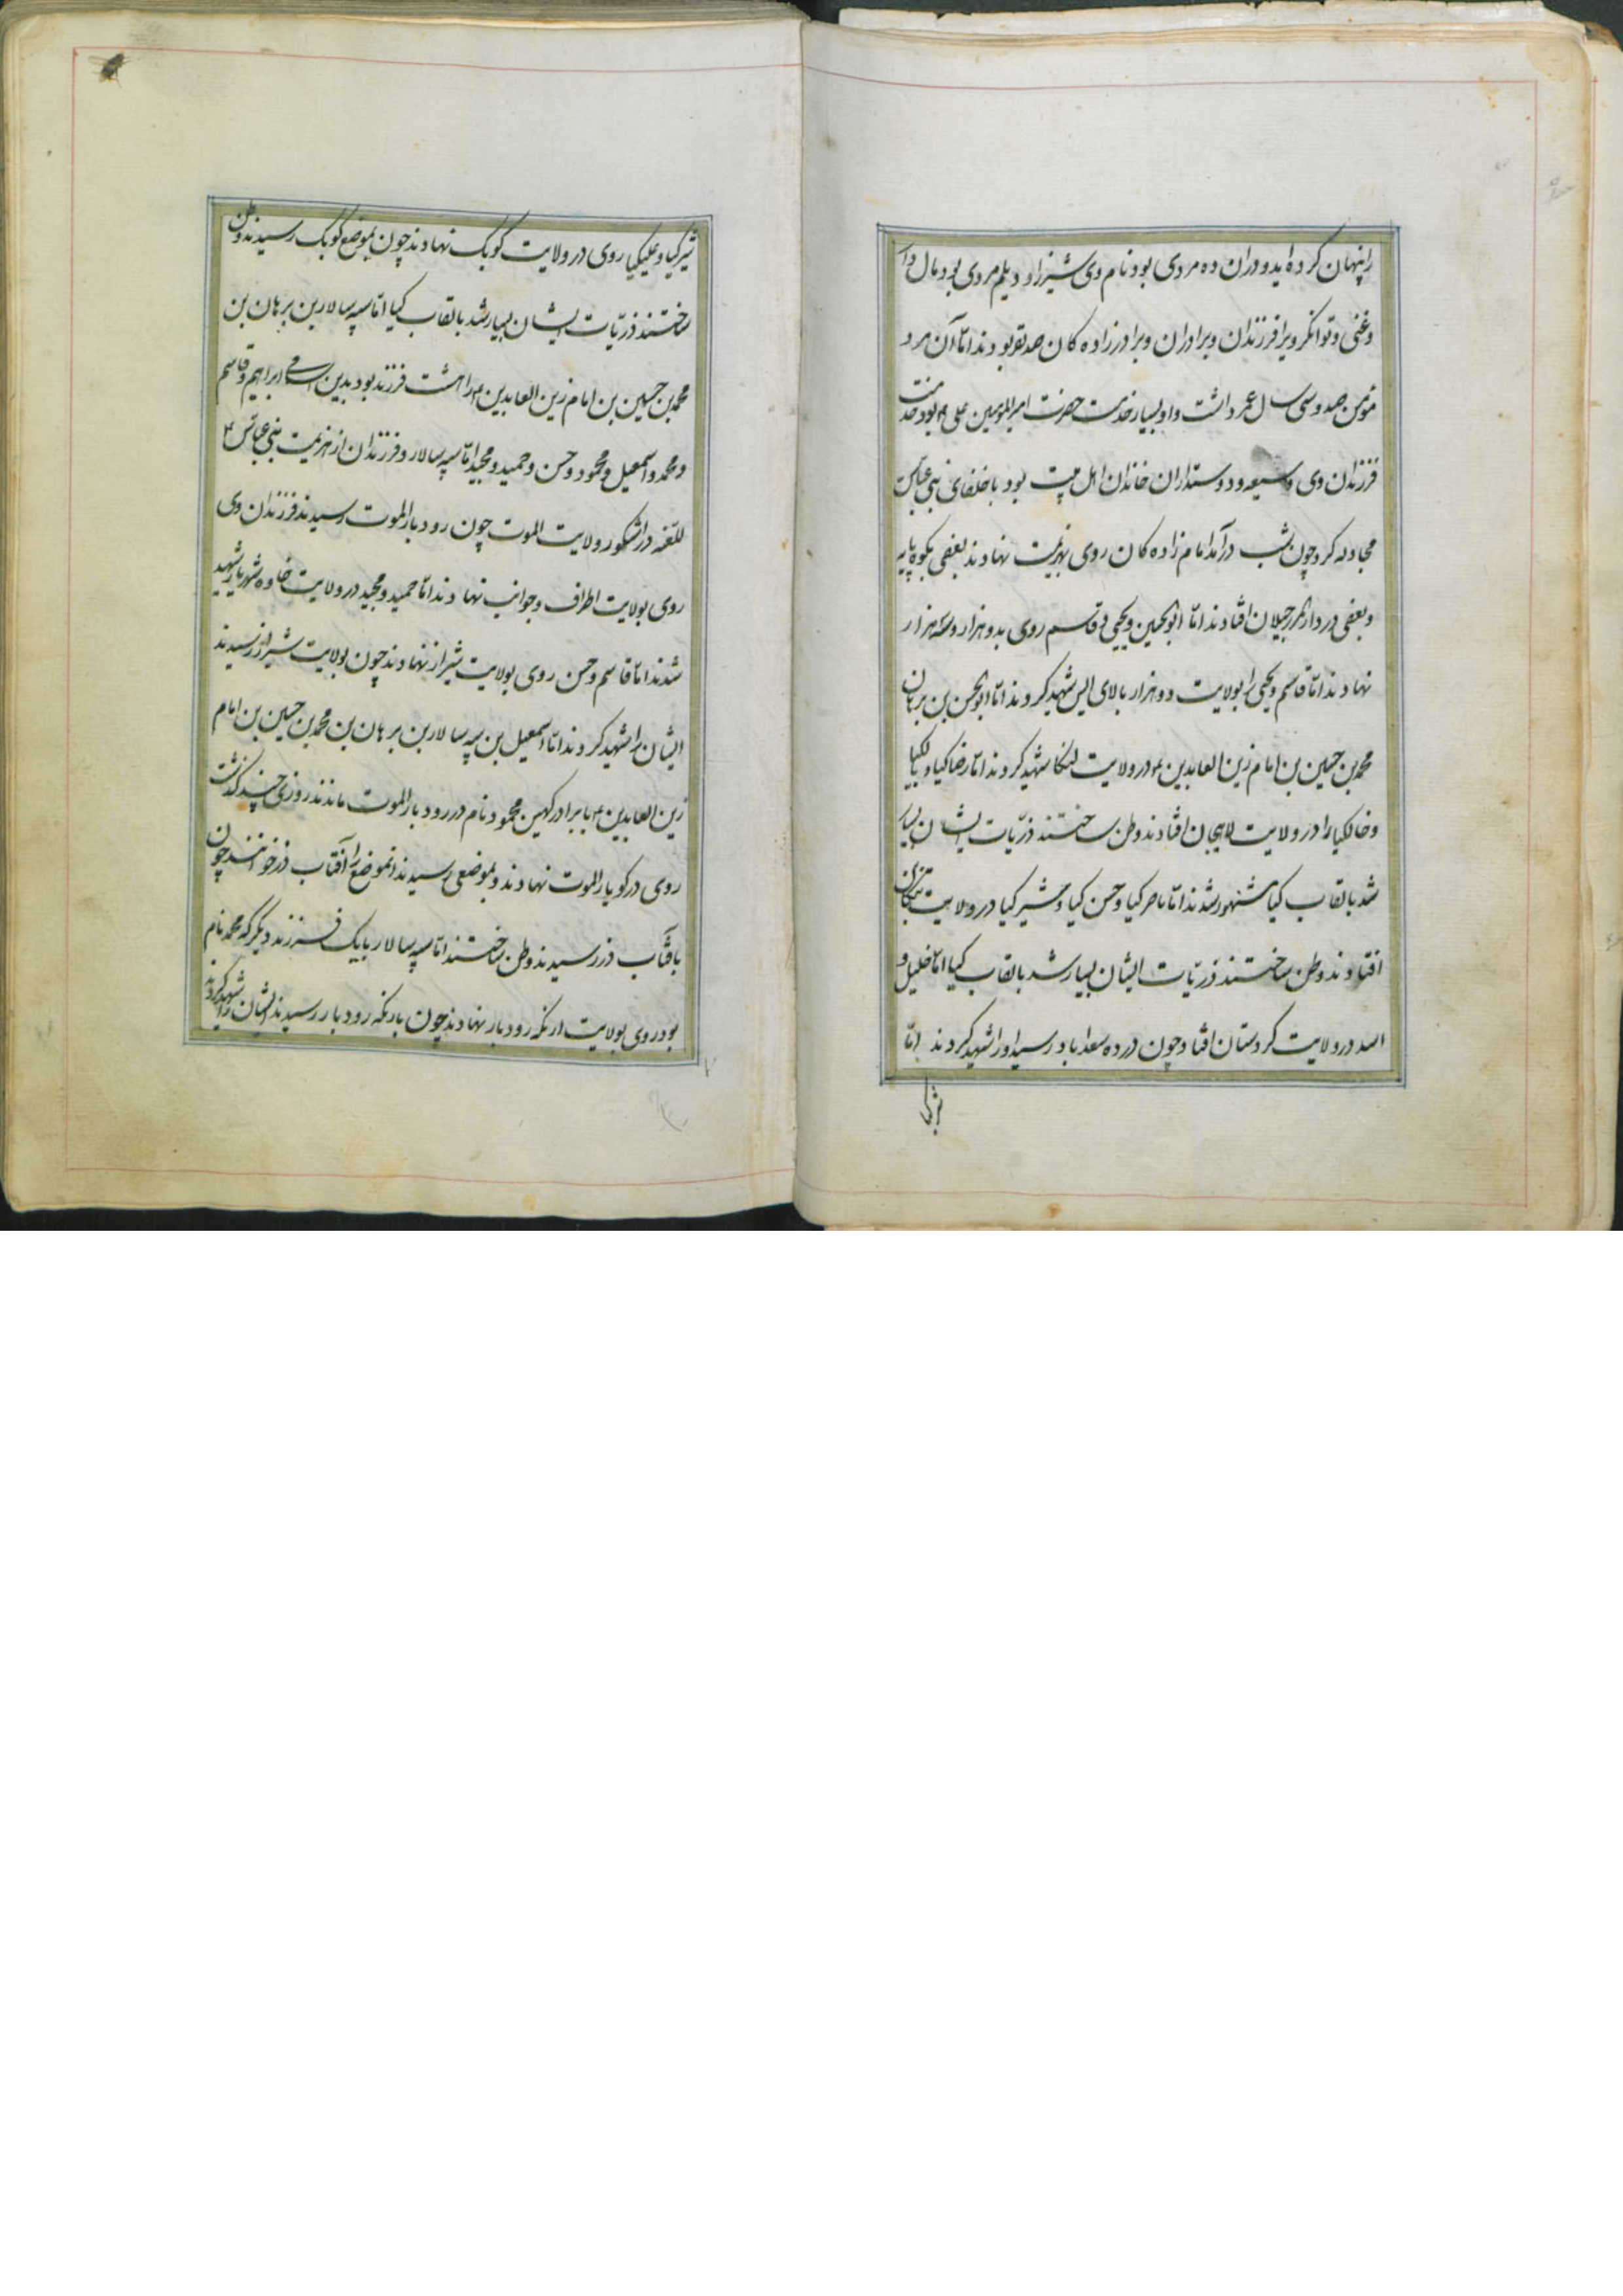 را پنهان کرده اید و در ان ده مردی بود نام وی شیرزاد دیلم مردی بود مال دار
و غنی و توانکر ویرا فرزندان و برادران و برادر زاده کان صد نفر بودند امّا آن مرد
مؤمن صد و سی سال عمر داشت و او بسیار خدمت حضرت امیر المؤمنین علی ع بود خدمت
فرزندان وی و شیعه و دوستداران خاندان اهل بیت بود با خلفای بنی عباس
مجادله کرد چون شب درآمد امام زاده کان روی بهزیمت نهادند بعضی بکوه پایه
و بعضی در دار المرز جیلان افتادند امّا ابو الحسین و یحیی و قاسم روی بدو هزار و سه هزار
نهادند امّا قاسم و یحیی را بولایت دو هزار بالای الیس شهید کردند امّا ابو الحسن بن برهان
محمد بن حسین بن امام زین العابدین ع در ولایت لنکا شهید کردند امّا رضا کیا و بالکیا
و خالکیا را در ولایت لاهیجان افتادند وطن ساختند ذریّات ایشان بسیار
شد بالقاب کیا مشهور شدند امّا ناصر کیا و حسن کیا و مشیر کیا در ولایت تنکابن
افتادند وطن ساختند ذریّات ایشان بسیار شد بالقاب کیا امّا خلیل و
اسد در ولایت کردستان افتاد چون در ده سعداباد رسید او را شهید کردند امّا
شیر کیا
شیر کیا و علیکیا روی در ولایت کوبک نهادند چون بموضع کوبک رسیدند وطن
ساختند ذریّات ایشان بسیار شد بالقاب کیا امّا سپه سالار بن برهان بن
محمد بن حسین بن امام زین العابدین ع را هشت فرزند بود بدین اسامی ابراهیم و قاسم
و محمد و اسمعیل و محمود و حسن و حمید و مجید امّا سپه سالار و فرزندان از هزیمت بنی عباس
در اشکور ولایت الموت چون رودبار الموت رسیدند فرزندان وی
روی بولایت اطراف و جوانب نهادند امّا حمید و مجید در ولایت خاوه شهریار شهید
شدند امّا قاسم و حسن روی بولایت شیراز نهادند چون بولایت شیراز رسیدند
ایشان را شهید کردند امّا اسمعیل بن سپه سالار بن برهان بن محمد بن حسین بن امام
زین العابدین ع با برادر کهین محمود نام در رودبار الموت ماندند روزی چند کذشت
روی در کوپار الموت نهادند و بموضعی رسیدند انموضع را آفتاب درخوانند چون
بافتاب در رسیدند وطن ساختند امّا سپه سالار با یک فرزند دیکر که محمد نام
بود روی بولایت ارنکه رودبار نهادند چون بارنکه رودبار رسیدند ایشان را شهید کردند